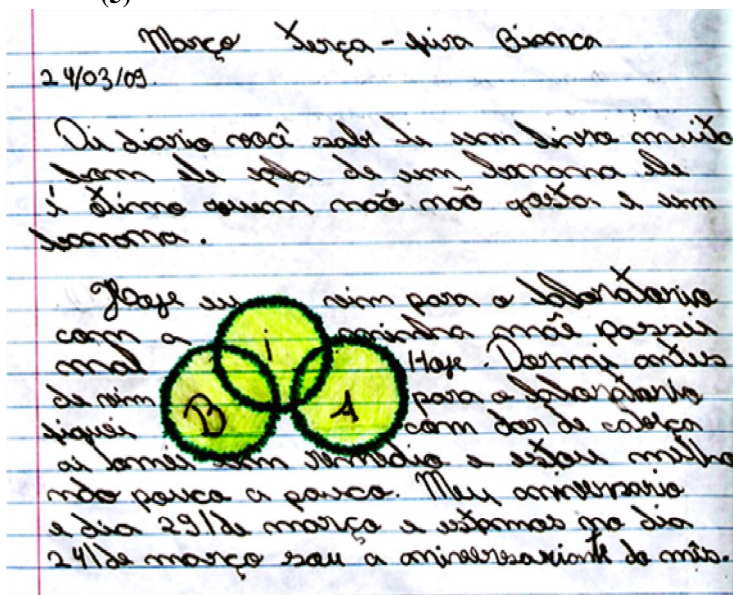 (5)
Março Terça-feira Bianca
24/03/09.
Oi diario você sabe li um livro muito
bom ele fala de um banana ele
é ótimo quem não não gosta e um
banana.
Hoje eu vim para o laboratorio
com a minha mãe passei
mal Hoje. Dormi antes
de vim para o laboratorio
fiquei com dor de cabeça
i
B A
ai tomei um remedio e estou melho
ndo pouco a pouco. Meu aniversario
e dia 29/de março e estamos no dia
24/de março sou a aniversariante do mês.